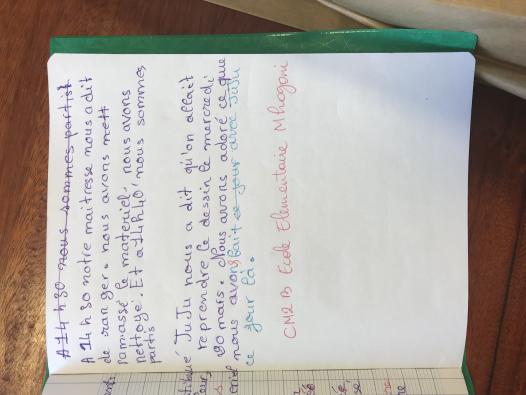 A 14 h 30 nous sommes partis
A 14 h 30 notre maitresse nous a dit
de ranger. nous avons mett
ramassé le materiel, nous avons
nettoyé. Et a 14h40' nous sommes
partis
JuJu nous a dit qu'on allait
reprendre le dessin le mercredi
30 mars. Nous avons adoré ce que
nous avons fait ce jour avec JuJu
ce jour là.
CM2 B Ecole Elementaire Mthogoni